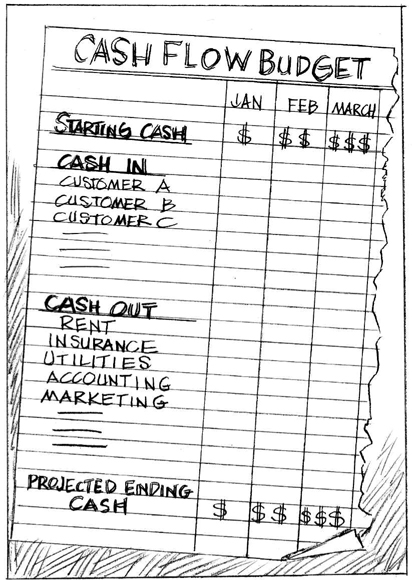 CASH FLOW BUDGET
JAN FEB MARCH
STARTING CASH $ $$ $$$
CASH IN
CUSTOMER A
CUSTOMER B
CUSTOMER C
CASH OUT
RENT
INSURANCE
UTILITIES
ACCOUNTING
MARKETING
PROJECTED ENDING
CASH $ $$ $$$